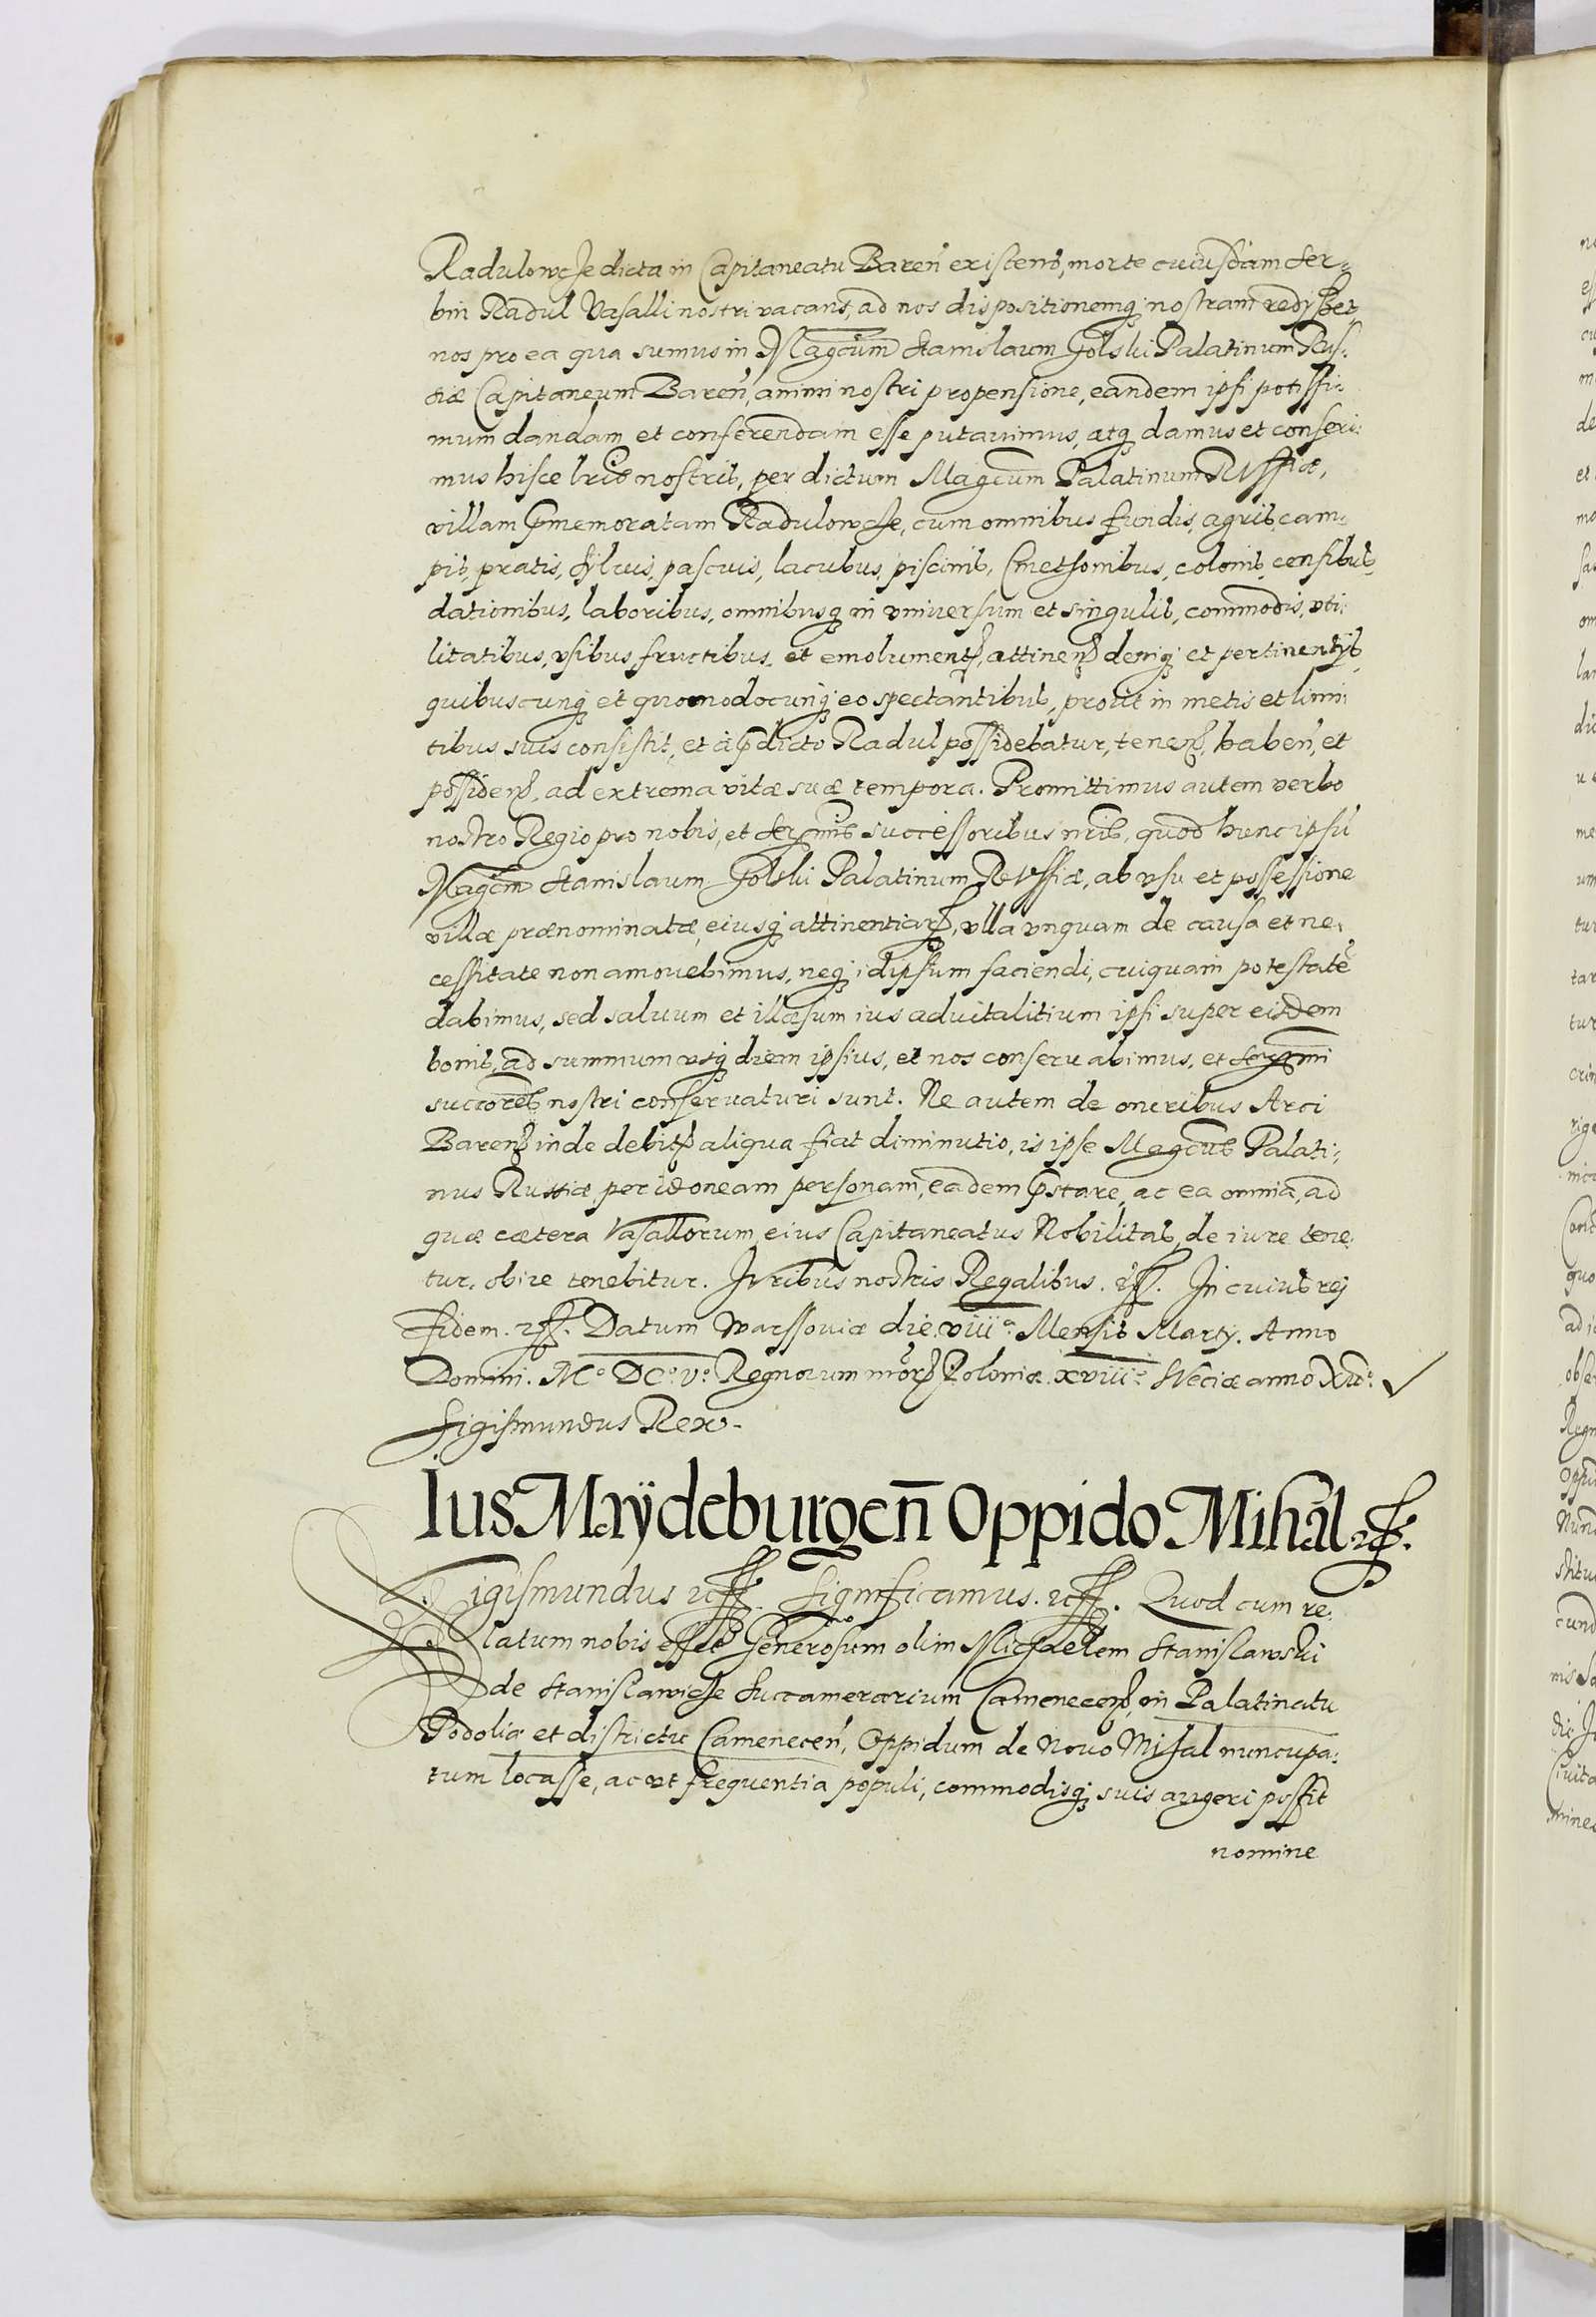 Radulowcze dicta in Capitaneatu Bareñ existens, morte cuiusdam Ser-
bin Radul Vasalli nostri vacans, ad nos dispositionemq; nostram redysset
nos pro ea qua sumus in Magcum Stanislaum Golski Palatinum Rus-
siæ Capitaneum Bareñ, animi nostri propensione, eandem ipsi potissi-
mum dandam et conferendam esse putauimus, atq; damus et conferi-
mus hisce lris nostris, per dictum Magcum Palatinum Russiæ,
villam p̃memoratam Radulowcze, cum omnibus fundis, agris, cam-
pis, pratis, syluis, pascuis, lacubus, piscinis, Cmethonibus, colonis, censibus,
dationibus, laboribus, omnibusq; in vniuersum et singulis, commodis, vti-
litatibus, vsibus fructibus, et emolument, attineñ deniq; et pertinentijs
quibuscunq; et quomodocunq; eo spectantibus, prout in metis et limi-
tibus suis consistit, et à p̃dicto Radul possidebatur, teneñ, habeñ, et
possideñ, ad extrema vitæ suæ tempora. Promittimus autem verbo
nostro Regio pro nobis, et Serenmis successoribus nris, quod hunc ipsũ
Magcm Stanislaum Golski Palatinum Russiæ, ab vsu et possessione
villæ prænominatæ, eiusq; attinentiar, vlla vnquam de causa et ne-
cessitate non amouebimus, neq; idipsum faciendi, cuiquam potestatẽ
dabimus, sed saluum et illæsum ius aduitalitium ipsi super eisdem
bonis, ad summum vsq; diem ipsius, et nos conseruabimus, et Serenmi
succores nostri conseruaturi sunt. Ne autem de oneribus Arci
Bareñ inde debit aliqua fiat diminutio, is ipse Magcus Palati-
nus Russiæ, per idoneam personam, eadem p̃stare, ac ea omnia, ad
quæ cætera Vasallorum eius Capitaneatus Nobilitas, de iure tene-
tur, obire tenebitur. Iuribus nostris Regalibus. etc. In cuius rej
fidem. etc. Datum Warssouiæ die viiiª. Mensis Martij. Anno
Domini. Mº DCº vº. Regnorum nror Poloniæ xviiiº. Sueciæ anno Xmº.
Sigismundus Rex.
Ius Maÿdeburgeñ Oppido Mihal. etc.
Sigismundus etc. Significamus. etc. Quod cum re-
latum nobis esset Generosum olim Michaelem Stanislawski
de Stanislawicze Succamerarium Cameneceñ, in Palatinatu
Podoliæ et districtu Cameneceñ, Oppidum de Nouo Mihal nuncupa-
tum locasse, ac vt frequentia populi, commodisq; suis augeri possit
nomine